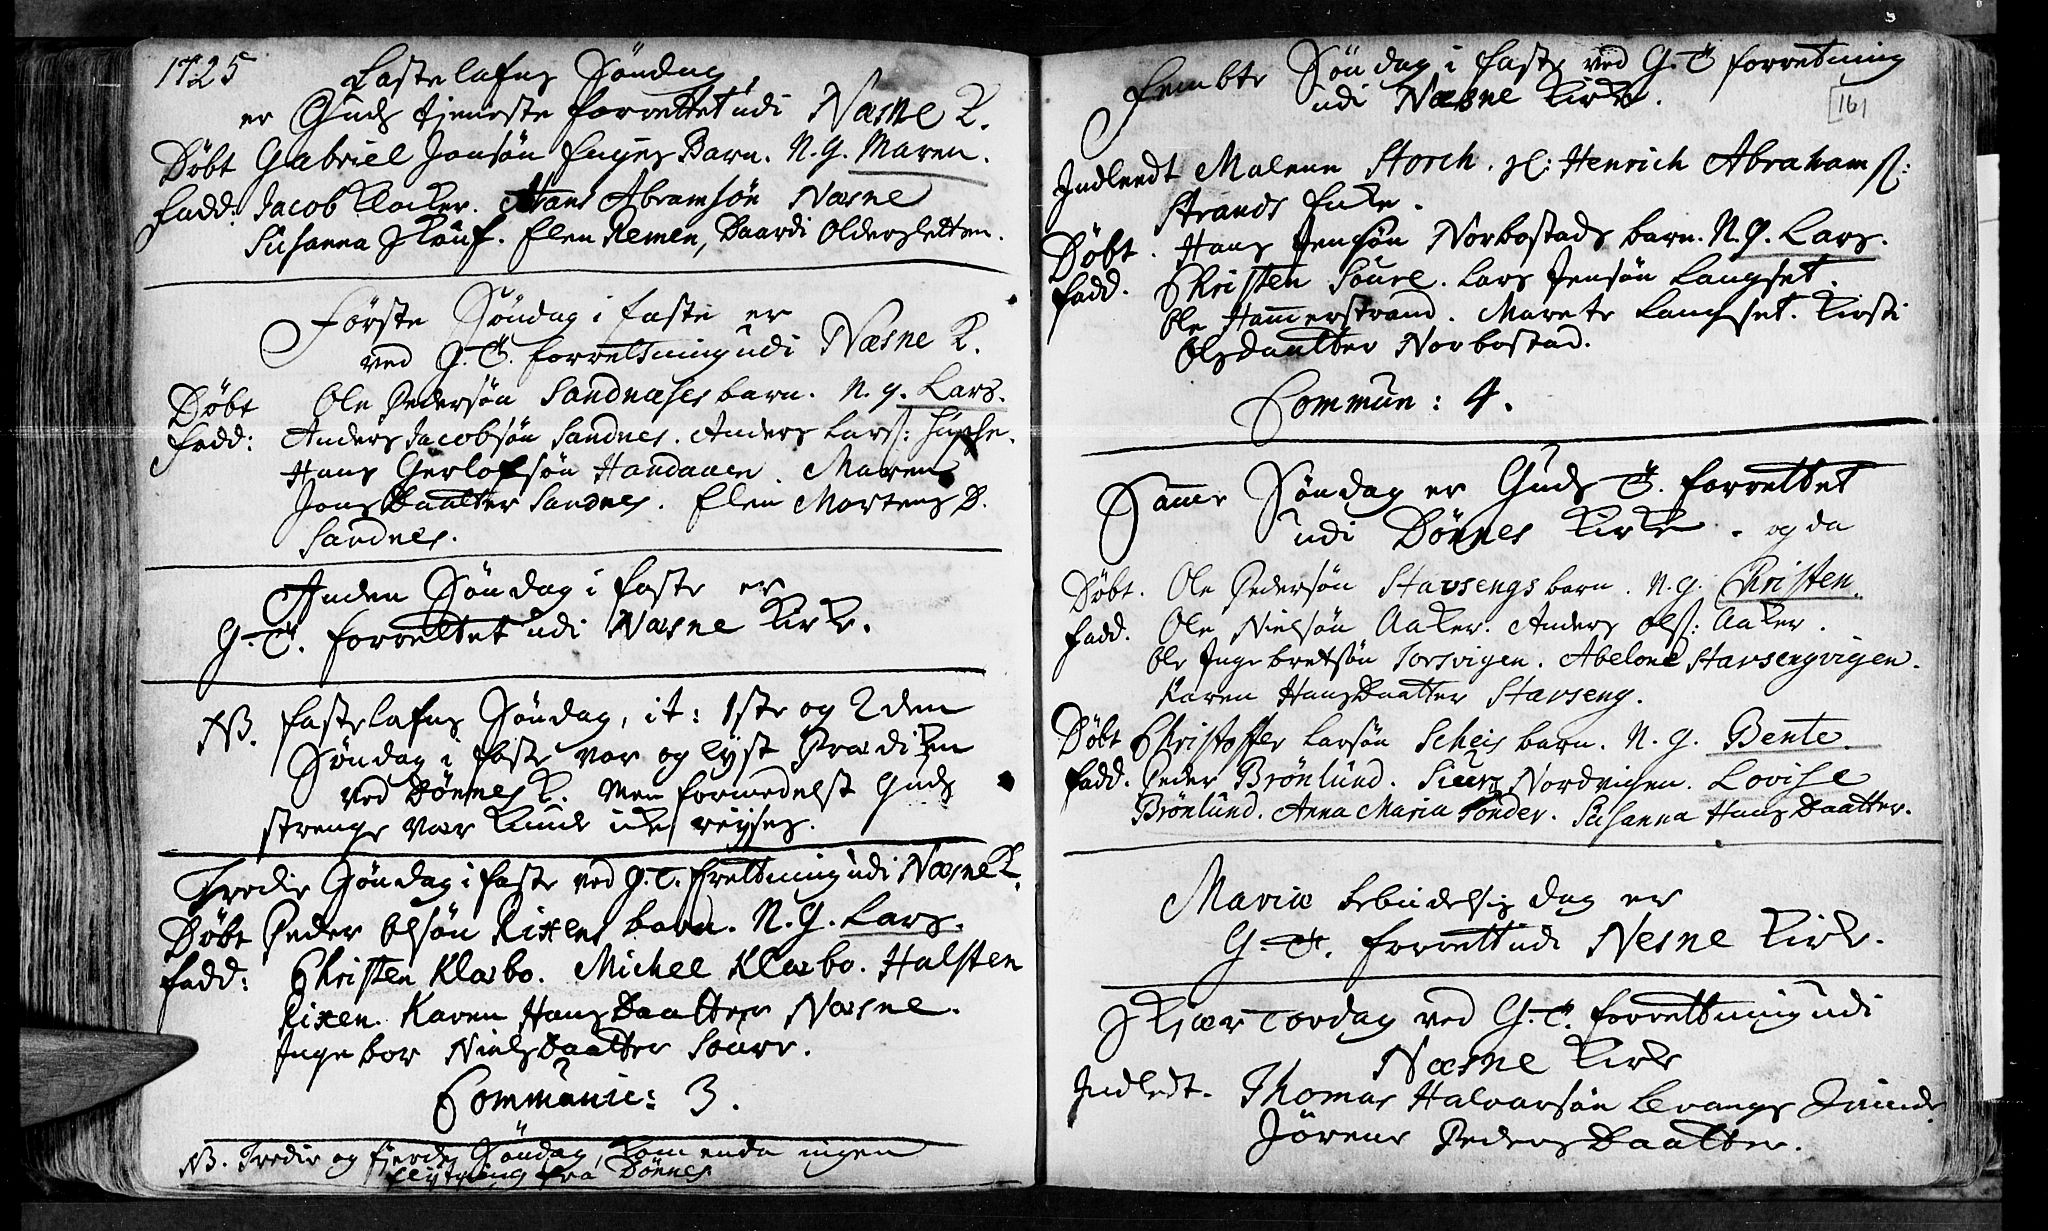 1725
Fastelafns Søndag,
er Guds tjeneste forrettet udi Næsne K.
Døbt Gabriel Jonsøn Enges Barn. N. G. Maren.
Fadd: Jacob Klocker. Hans Abramsøn Næsne
Susanna Skauf. Elen Remen, Baardi Oldersletten.
Første Søndag i faste er
ved G. T. forretning udi Næsne K.
Døbt Ole Pedersøn Sandnæses barn. N. g. Lars.
Fadd: Anders Jacobsøn Sandnes. Anders Larss:
Hans Gerlofsøn Handanen. Maren
Jons Daatter Sandnes. Elen Mortens D.
Sandnes.
Anden Søndag i faste er
G. T. forrettet udi Næsne Kirke.
NB. Fastelafns Søndag, it: 1ste og 2den
Søndag i faste var og lyst Prædiken
ved Dønnes K. Men formedelst Guds
strenge vær kunde ikke reyses.
Tredie Søndag i faste ved G. T. forrettning udi Næsne K.
Døbt Peder Olsøn Rixens barn. N. G. Lars.
Fadd: Christen Klæbo. Michel Klæbo. Halsten
Rixen. Karen Hans Daatter Næsne.
Ingebor Niels Daatter Soure.
Communic: 3.
NB. Tredie og fierde Søndag, kom enda ingen
flytning fra Dønnes
Fembte Søndag i faste ved G. T. forretning
udi Næsne Kirke.
[161
Indleedt Malene Storch. sl: Henrich Abraham s:
Strands Enke.
Døbt. Hans Jensøn Norbostads barn. N. G. Lars.
Fadd. Christen Soure. Lars Jensøn Langset.
Ole Hamerstrand. Marete Langset. Kirsti
Olsdaatter Norbostad.
Commun: 4.
Same Søndag er Guds T. forrettet
udi Dønnes Kirke. og da
Døbt. Ole Pedersøn Stavsengs barn. N. G. Christen.
Fadd. Ole Nielsøn Aaker. Anders Olss: Aaker.
Ole Ingebretsøn Torsvigen. Abelone Stavsengvigen.
Karen Hans Daatter Stavseng.
Døbt Christoffer Larsøn Scheis barn. N. g. Bente.
Fadd. Peder Brønlund. Siurs Nordvigen. Lovise
Brønlund. Anna Maria Tønder. Susanna Hans Daatter.
Mariæ bebudelsis dag er
G. T. forrett udi Nesne Kirke.
Skiær Tordag ved G. T. forrettning udi
Næsne Kirke
Indledt. Thomas Halvarsøn Levangs Qvinde
Jørene Peders Daatter.